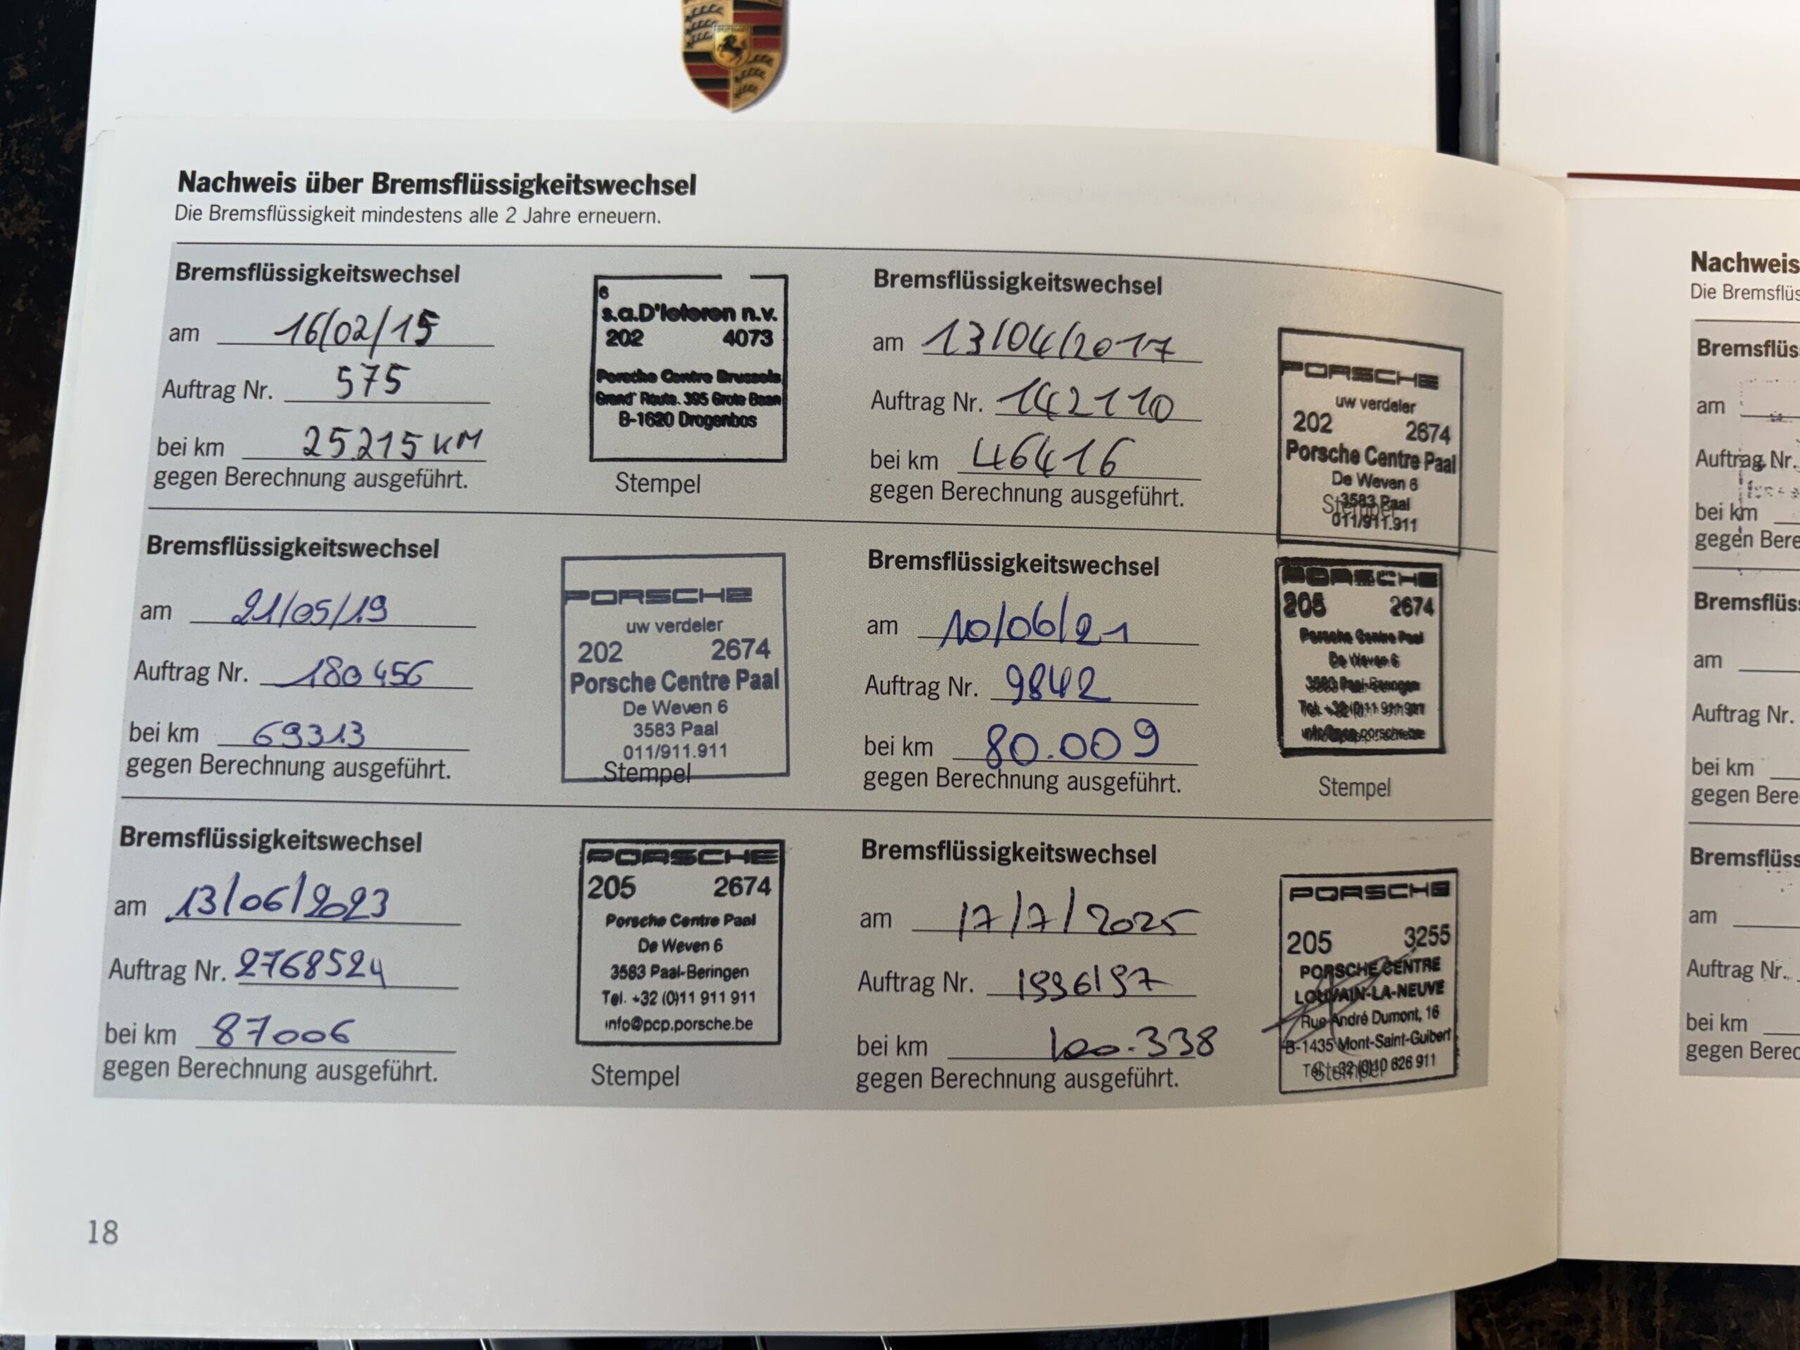 Nachweis über Bremsflüssigkeitswechsel
Die Bremsflüssigkeit mindestens alle 2 Jahre erneuern.
Bremsflüssigkeitswechsel
am 16/02/15
Auftrag Nr. 575
bei km 25215 KM
gegen Berechnung ausgeführt.
6
s.a.D'Ieteren n.v.
202 4073
Porsche Centre Brussels
Grand' Route. 395 Grote Baan
B-1620 Drogenbos
Stempel
Bremsflüssigkeitswechsel
am 13/04/2017
Auftrag Nr. 142110
bei km 46416
gegen Berechnung ausgeführt.
PORSCHE
uw verdeler
202 2674
Porsche Centre Paal
De Weven 6
3583 Paal
011/911.911
Stempel
Bremsflüssigkeitswechsel
am 21/05/19
Auftrag Nr. 180456
bei km 69313
gegen Berechnung ausgeführt.
PORSCHE
uw verdeler
202 2674
Porsche Centre Paal
De Weven 6
3583 Paal
011/911.911
Stempel
Bremsflüssigkeitswechsel
am 10/06/21
Auftrag Nr. 9842
bei km 80.009
gegen Berechnung ausgeführt.
PORSCHE
205 2674
Porsche Centre Paal
De Weven 6
3583 Paal-Beringen
Tel. +32 (0)11 911 911
info@pcp.porsche.be
Stempel
Bremsflüssigkeitswechsel
am 13/06/2023
Auftrag Nr. 2768524
bei km 87006
gegen Berechnung ausgeführt.
PORSCHE
205 2674
Porsche Centre Paal
De Weven 6
3583 Paal-Beringen
Tel. +32 (0)11 911 911
info@pcp.porsche.be
Stempel
Bremsflüssigkeitswechsel
am 17/7/2025
Auftrag Nr. 1996197
bei km 100.338
gegen Berechnung ausgeführt.
PORSCHE
205 3255
PORSCHE CENTRE
LOUVAIN-LA-NEUVE
Rue André Dumont, 16
B-1435 Mont-Saint-Guibert
Tél. +32 (0)10 626 911
Stempel
18
Nachweis
Die Bremsflüs
Bremsflüs
am
Auftrag Nr.
bei km
gegen Bere
Bremsflüs
am
Auftrag Nr.
bei km
gegen Bere
Bremsflüss
am
Auftrag Nr.
bei km
gegen Berec